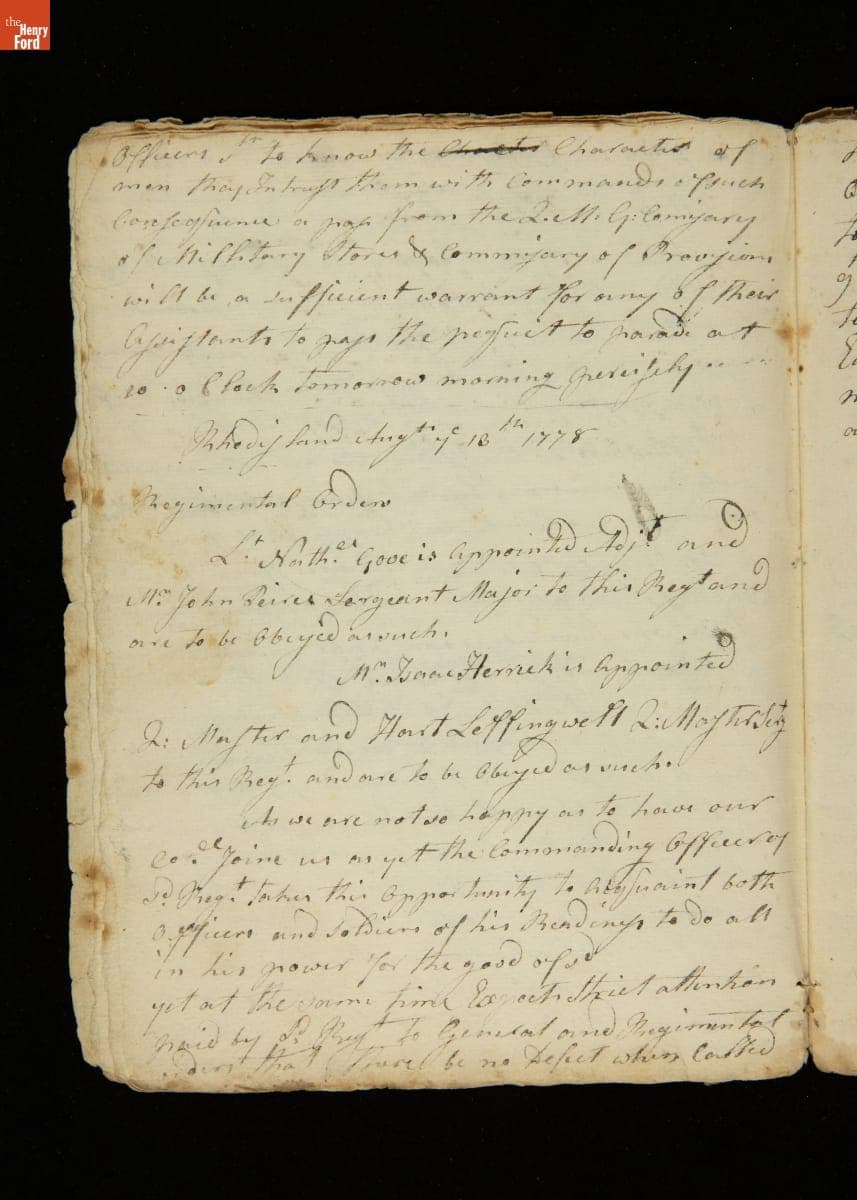 the
Henry
Ford
Officers to know the Character of
men they Intrust them with Commands of such
Consequence a pass from the Q. M. G: Comissary
of Millitary Stores & Commissary of Provisions
will be a sufficient warrant for any of their
Assistants to pass the pequet to parade at
10 o Clock tomorrow morning
Rhodisland Augt ye 13th 1778
Regimental Orders
Lt Nathel Gove is Appointed Adjt and
Mr John Sergeant Major to this Regt and
are to be Obeyed as such.
Mr Isaac Herrick is Appointed
Q: Master and Hart Leffingwell Q: Master Serg
to this Regt. and are to be Obeyed as such.
As we are not so happy as to have our
Coll Joine us as yet the Commanding Officer of
sd Regt takes this Opportunity to Acquaint both
Officers and Soldiers of his Readinys to do all
in his power for the good of sd
yet at the same time Expects Strict attention
paid by sd Regt to General and Regimental
orders that there be no Defect when Called